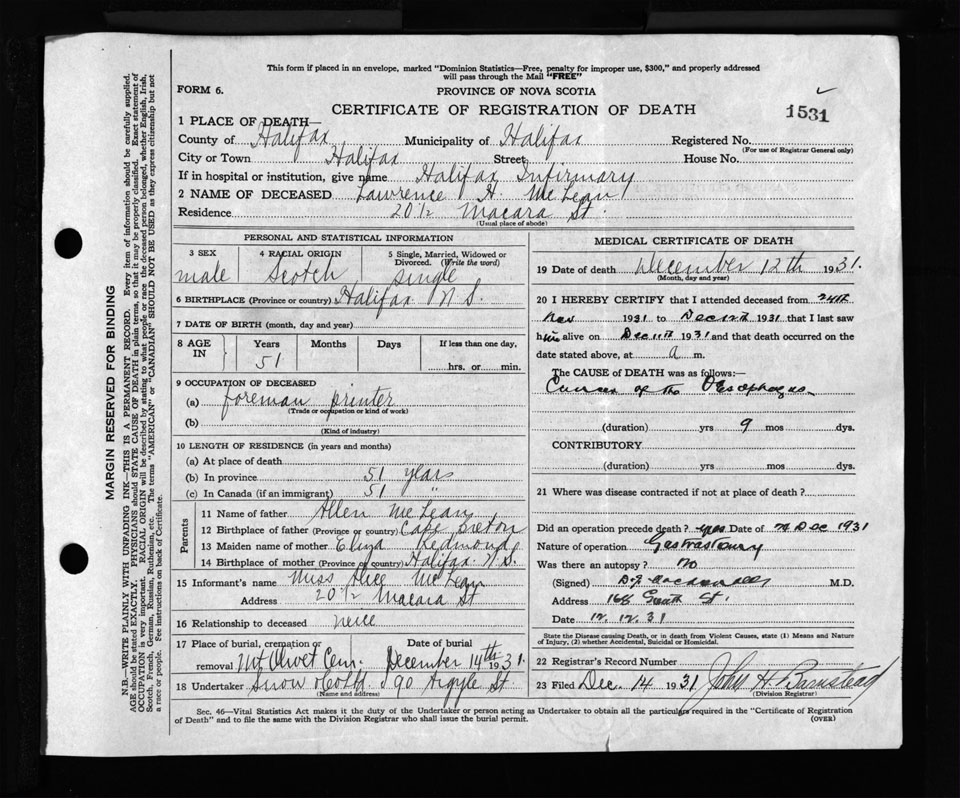 This form if placed in an envelope, marked "Dominion Statistics—Free, penalty for improper use, $300," and properly addressed
will pass through the Mail "FREE"
FORM 6.
PROVINCE OF NOVA SCOTIA
CERTIFICATE OF REGISTRATION OF DEATH
1531
1 PLACE OF DEATH—
County of Halifax Municipality of Halifax Registered No.
(For use of Registrar General only)
City or Town Halifax Street House No.
If in hospital or institution, give name Halifax Infirmary
2 NAME OF DECEASED Lawrence H. McLean
Residence 20 1/2 Macara St.
(Usual place of abode)
PERSONAL AND STATISTICAL INFORMATION
3 SEX 4 RACIAL ORIGIN 5 Single, Married, Widowed or
Divorced. (Write the word)
male Scotch single
6 BIRTHPLACE (Province or country) Halifax N.S.
7 DATE OF BIRTH (month, day and year)
8 AGE IN Years Months Days If less than one day,
51 hrs. or min.
9 OCCUPATION OF DECEASED
(a) foreman printer
(Trade or occupation or kind of work)
(b)
(Kind of industry)
10 LENGTH OF RESIDENCE (in years and months)
(a) At place of death
(b) In province 51 years
(c) In Canada (if an immigrant) 51 "
Parents
11 Name of father Allen McLean
12 Birthplace of father (Province or country) Cape Breton
13 Maiden name of mother Eliza Redmond
14 Birthplace of mother (Province or country) Halifax N.S.
15 Informant's name Miss Alice McLean
Address 20 1/2 Macara St
16 Relationship to deceased neice
17 Place of burial, cremation or removal Mt Olivet Cem. Date of burial December 14th 1931.
18 Undertaker Snow & Co Ltd. 90 Argyle St
(Name and address)
MEDICAL CERTIFICATE OF DEATH
19 Date of death December 12th 1931.
(Month, day and year)
20 I HEREBY CERTIFY that I attended deceased from 24th
Nov 1931 to Dec 12th 1931 that I last saw
him alive on Dec 11th 1931 and that death occurred on the
date stated above, at a m.
The CAUSE OF DEATH was as follows:
Cancer of the Oesophagus
(duration) yrs 9 mos dys.
CONTRIBUTORY
(duration) yrs mos dys.
21 Where was disease contracted if not at place of death?
Did an operation precede death? yes Date of Dec 1931
Nature of operation Gastrostomy
Was there an autopsy? no
(Signed) M.D.
Address South St.
Date 12.12.31
State the Disease causing Death, or in death from Violent Causes, state (1) Means and Nature
of Injury, (2) whether Accidental, Suicidal or Homicidal.
22 Registrar's Record Number
23 Filed Dec. 14 1931 John H Barnstead
(Division Registrar)
Sec. 46—Vital Statistics Act makes it the duty of the Undertaker or person acting as Undertaker to obtain all the particulars required in the "Certificate of Registration
of Death" and to file the same with the Division Registrar who shall issue the burial permit.
(OVER)
MARGIN RESERVED FOR BINDING
N.B.—WRITE PLAINLY WITH UNFADING INK—THIS IS A PERMANENT RECORD. Every item of information should be carefully supplied.
AGE should be stated EXACTLY. PHYSICIANS should STATE CAUSE OF DEATH in plain terms, so that it may be properly classified. Exact statement of
OCCUPATION is very important. RACIAL ORIGIN will be described by stating to what people or race the deceased person belonged, whether English, Irish,
Scotch, French, German, Russian, Ruthenian, etc. The terms "AMERICAN" or "CANADIAN" SHOULD NOT BE USED as they express citizenship but not
a race or people. See instructions on back of Certificate.